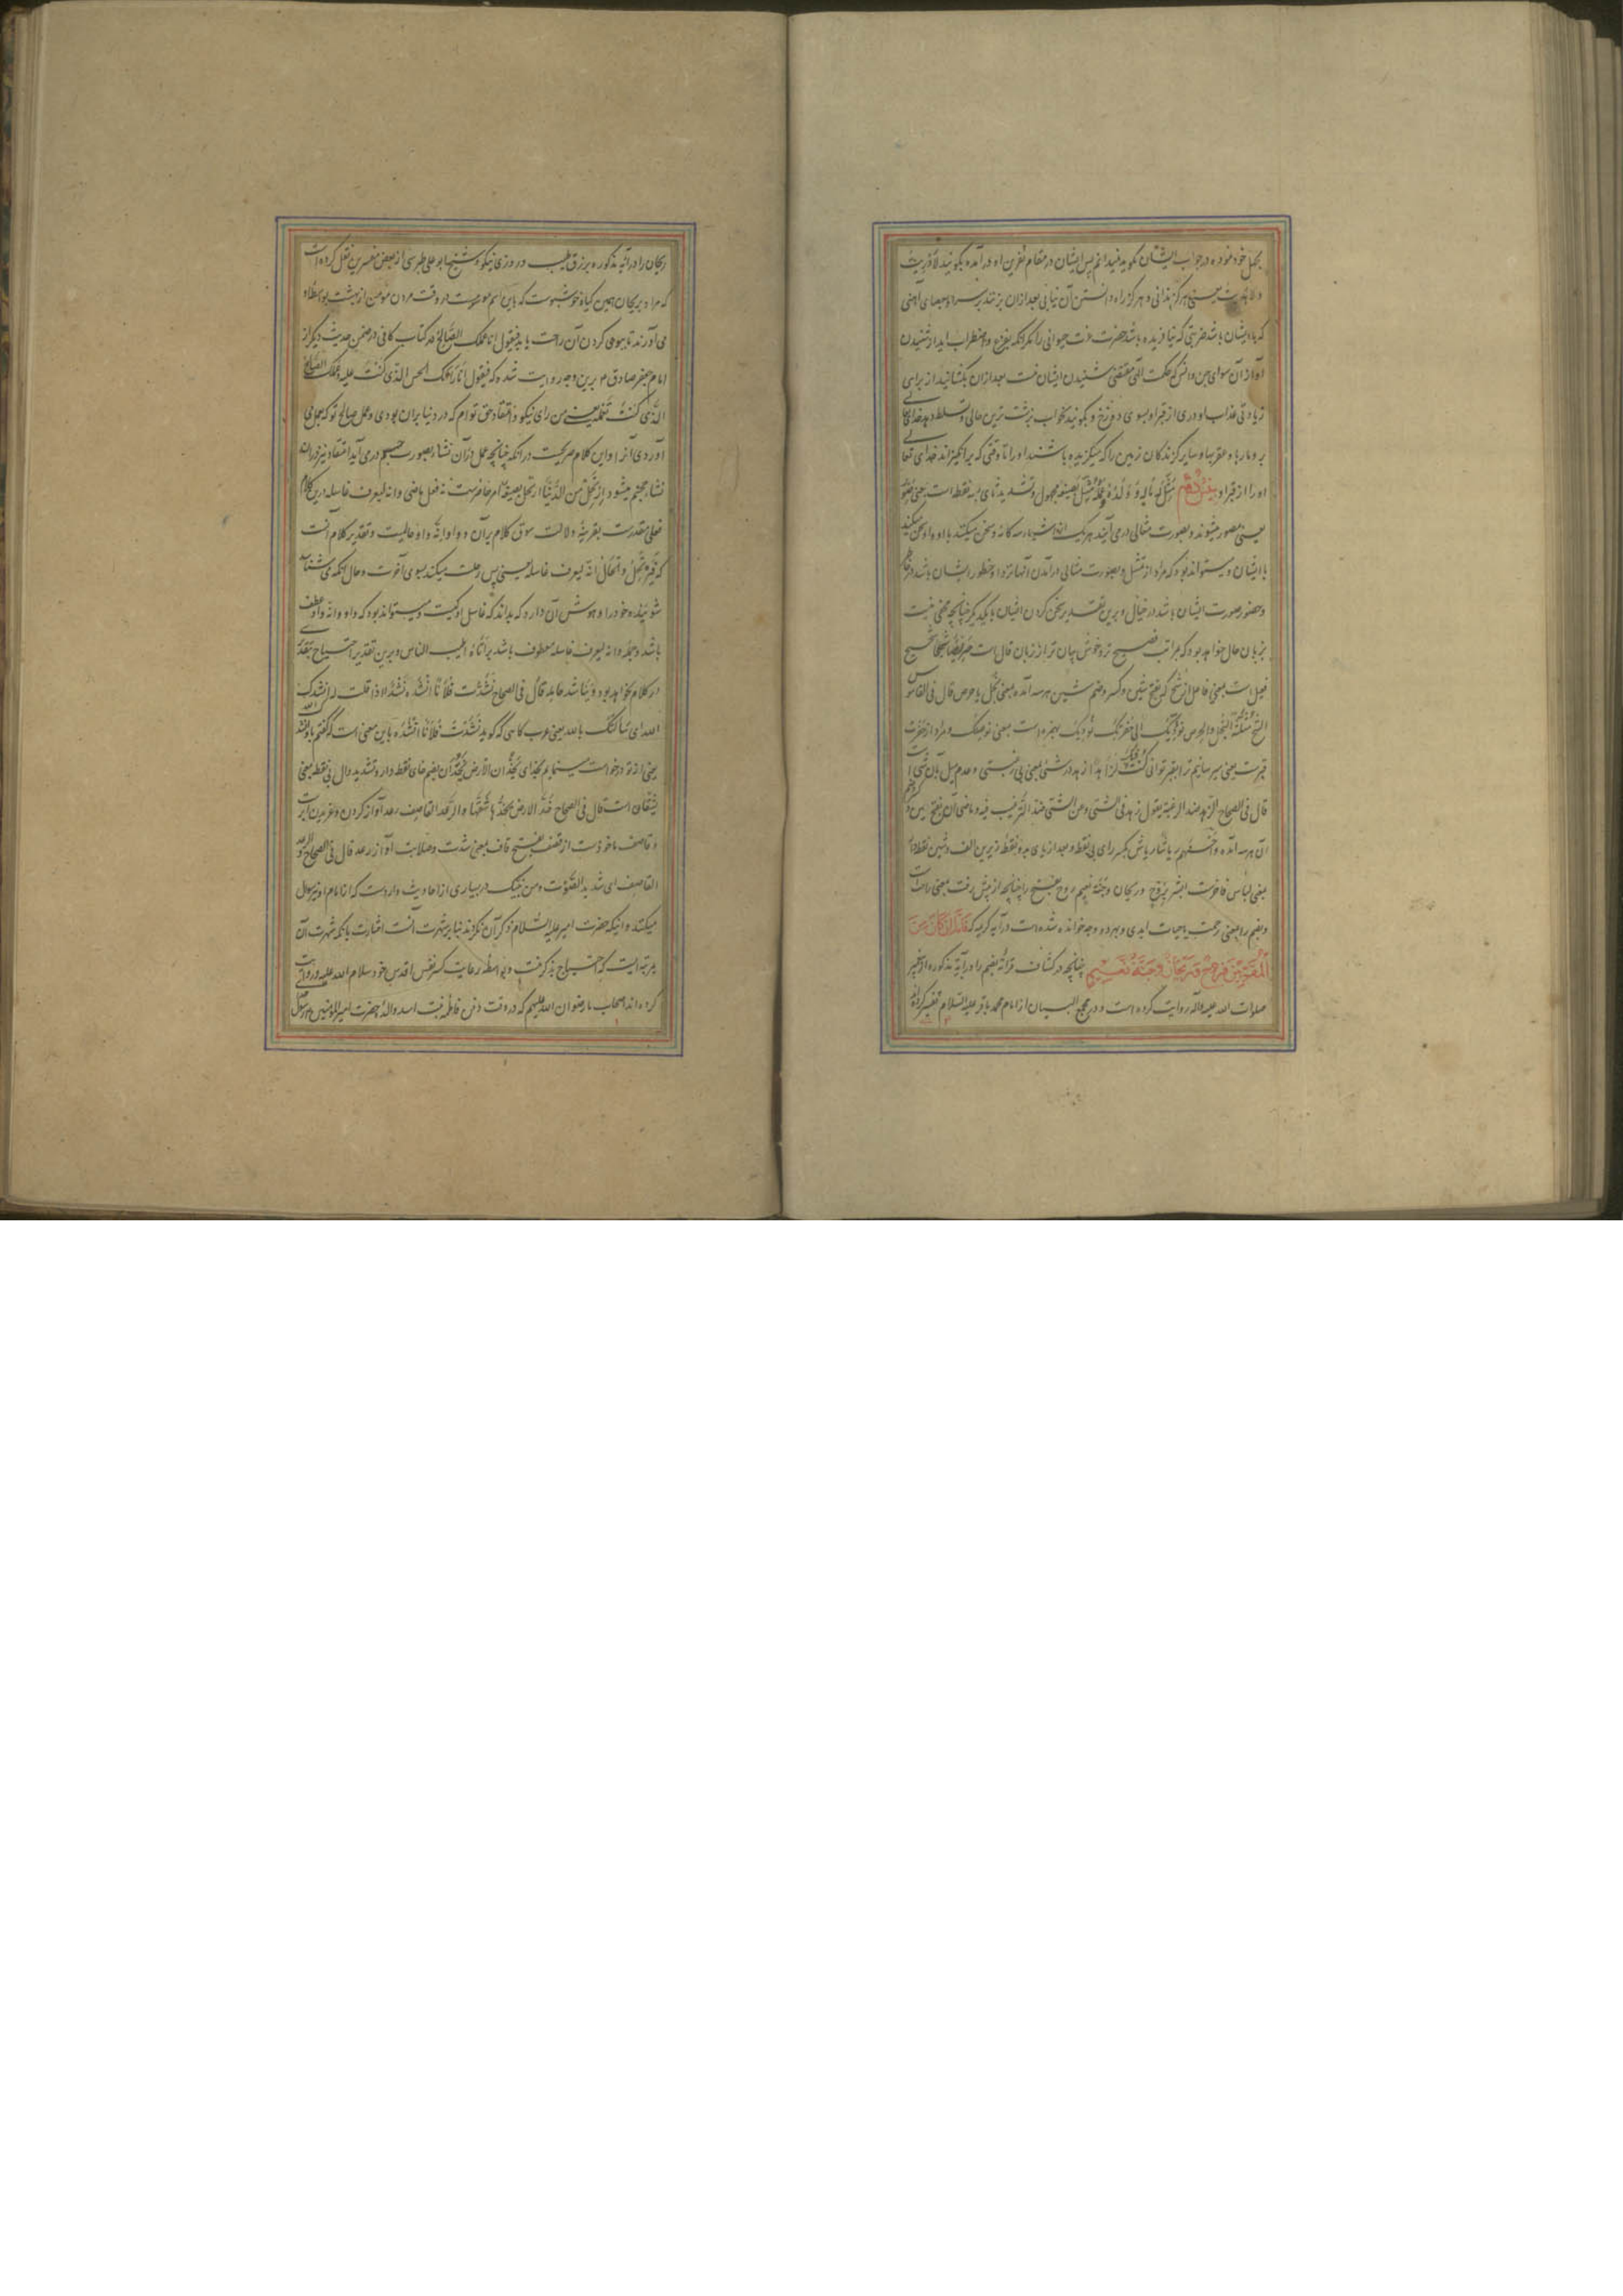 بجهل خود نموده در جواب ایشان گوید نمیدانم پس ایشان در مقام نفرین او در آمده بگویند لا دریت
ولا هدیت یعنی هرگز ندانی و هرگز راه دانستن آن نیابی بعد ازان بزنند بر سر او بعصای آهنی
که با ایشان باشد ضربتی که نیافریده باشد حضرت عزت حیوانی را مگر آنکه بفزع و اضطراب آید از شنیدن
آواز آن سوای جن و انس که حکمت الهی مقتضی شنیدن ایشان نیست بعد ازان بگشایند از برای
زیادتی عذاب او دری از قبر او بسوی دوزخ و بگویند بخواب بزشت ترین حالی و مسلط دهد خدای تعالی
برو مارها و عقربها و سایر گزندگان زمین را که میگزیده باشند او را تا وقتی که برانگیزاند خدای تعالی
او را از قبر او مثل له ماله و ولده و عمله مثل بصیغه مجهول و تشدید ثای سه نقطه است یعنی مصور
یعنی مصور میشوند و بصورت مثالی در می آیند هر یک از اشیاء سه گانه و سخن میکند با او و او سخن میکند
با ایشان و میتواند بود که مراد از تمثل و بصورت مثالی در آمدن آنها نزد او خطور ایشان باشد در خاطر
و حضور صورت ایشان باشد در خیال و برین تقدیر سخن کردن ایشان با یکدیگر چنانچه مخفی نیست
بزبان حال خواهد بود که بمراتب فصیح تر و خوش بیان تر از زبان قال است حریصا شحیحا شحیح
فعیل است بمعنی فاعل از شح که بفتح شین و کسر و ضم شین هر سه آمده بمعنی بخل یا حرص قال فی القاموس
الشح مثلثة البخل والحرص نؤدیک الی حفرتک نؤدیک بهمزه است بمعنی نوصلک و مراد از حفرت
قبر است یعنی میرسانیم ترا بقبر تو انی کنت فیک لزاهدا زهد در شیء بمعنی بی رغبتی و عدم میل بآن شیء است
قال فی الصحاح الزهد ضد الرغبة یقول زهد فی الشیء وعن الشیء ضد الترغیب فیه و ماضی آن بفتح زین و کسر و ضم
آن هر سه آمده و احسنهم ریاشا ریاش بکسر رای بی نقطه و بعد از یای دو نقطه زیرین الف و شین نقطه دار
بمعنی لباس فاخرست ابشر بروح وریحان وجنة نعیم روح بفتح را چنانچه از پیش رفت بمعنی راحت است
و بضم را بمعنی رحمت یا حیات ابدی و بهر دو وجه خوانده شده است در آیه کریمه که فاما ان کان من
المقربین فروح وریحان وجنة نعیم چنانچه در کشاف قرائة بضم را در آیة مذکوره از پیغمبر
صلوات الله علیه وآله روایت کرده است و در مجمع البیان از امام محمد باقر علیه السلام تفسیر کرده اند
ریحان را در آیه مذکوره برزق طیب و روزی نیکو و شیخ ابو علی طبرسی از بعض مفسرین نقل کرده است
که مراد بریحان همین گیاه خوشبوست که باین اسم موسومست در وقت مردن مؤمن از بهشت بواسطه او
می آورند تا ببوی کردن آن راحت یابد فیقول انا عملک الصالح در کتاب کافی در ضمن حدیث دیگر از
امام جعفر صادق م برین وجه روایت شده که فیقول انا رأیک الحسن الذی کنت علیه وعملک الصالح
الذی کنت تعمله یعنی من رای نیکو و اعتقاد حق توام که در دنیا بران بودی و عمل صالح تو که بجا می
آوردی آنرا و این کلام صریحست در آنکه چنانچه عمل در آن نشأه بصورت جسم در می آید اعتقاد نیز در ان
نشأه مجسم میشود ارتحل من الدنیا ارتحل بصیغة امر حاضرست نه فعل ماضی و انه لیعرف غاسله درین کلام
فعلی مقدرست بقرینه و دلالت سوق کلام بر آن و واو وانه واو حالیست و تقدیر کلام آنست
که فیرتحل والحال انه لیعرف غاسله یعنی پس رحلت میکند بسوی آخرت و حال آنکه می شناسد
شوینده خود را و هوش آن دارد که بداند که غاسل او کیست و میتواند بود که واو وانه واو عطف
باشد و جمله وانه لیعرف غاسله معطوف باشد بر اتاه اطیب الناس و برین تقدیر احتیاج بتقدیر
در کلام نخواهد بود ویناشد حامله قال فی الصحاح نشدت فلانا انشده نشدا اذا قلت له نشدتک
الله ای سألتک بالله یعنی عرب گاهی که گوید نشدت فلانا انشده باین معنی است که گفتم باو نشدتک الله
یعنی از تو درخواست مینمایم بخدای یخدان الارض یخدان بضم خای نقطه دار و تشدید دال بی نقطه بمعنی
یشقان است قال فی الصحاح خد الارض یخدها شقها والرعد القاصف رعد آواز کردن و غریدن ابر است
و قاصف ماخوذست از قصف بفتح قاف بمعنی شدت و صلابت آواز رعد قال فی الصحاح الرعد
القاصف ای شدید الصوت ومن نبیک در بسیاری از احادیث واردست که از امام او نیز سؤال
میکنند و اینکه حضرت امیر علیه السلام ذکر آن نکردند بنا بر شهرت آنست اشارت بآنکه شهرت آن
بمرتبه ایست که احتیاج بذکر نیست و یا بواسطه رعایت کسر نفس اقدس خود سلام الله علیه و روایت
کرده اند اصحاب ما رضوان الله علیهم که در وقت دفن فاطمه بنت اسد والدۀ حضرت امیر المؤمنین م رسول